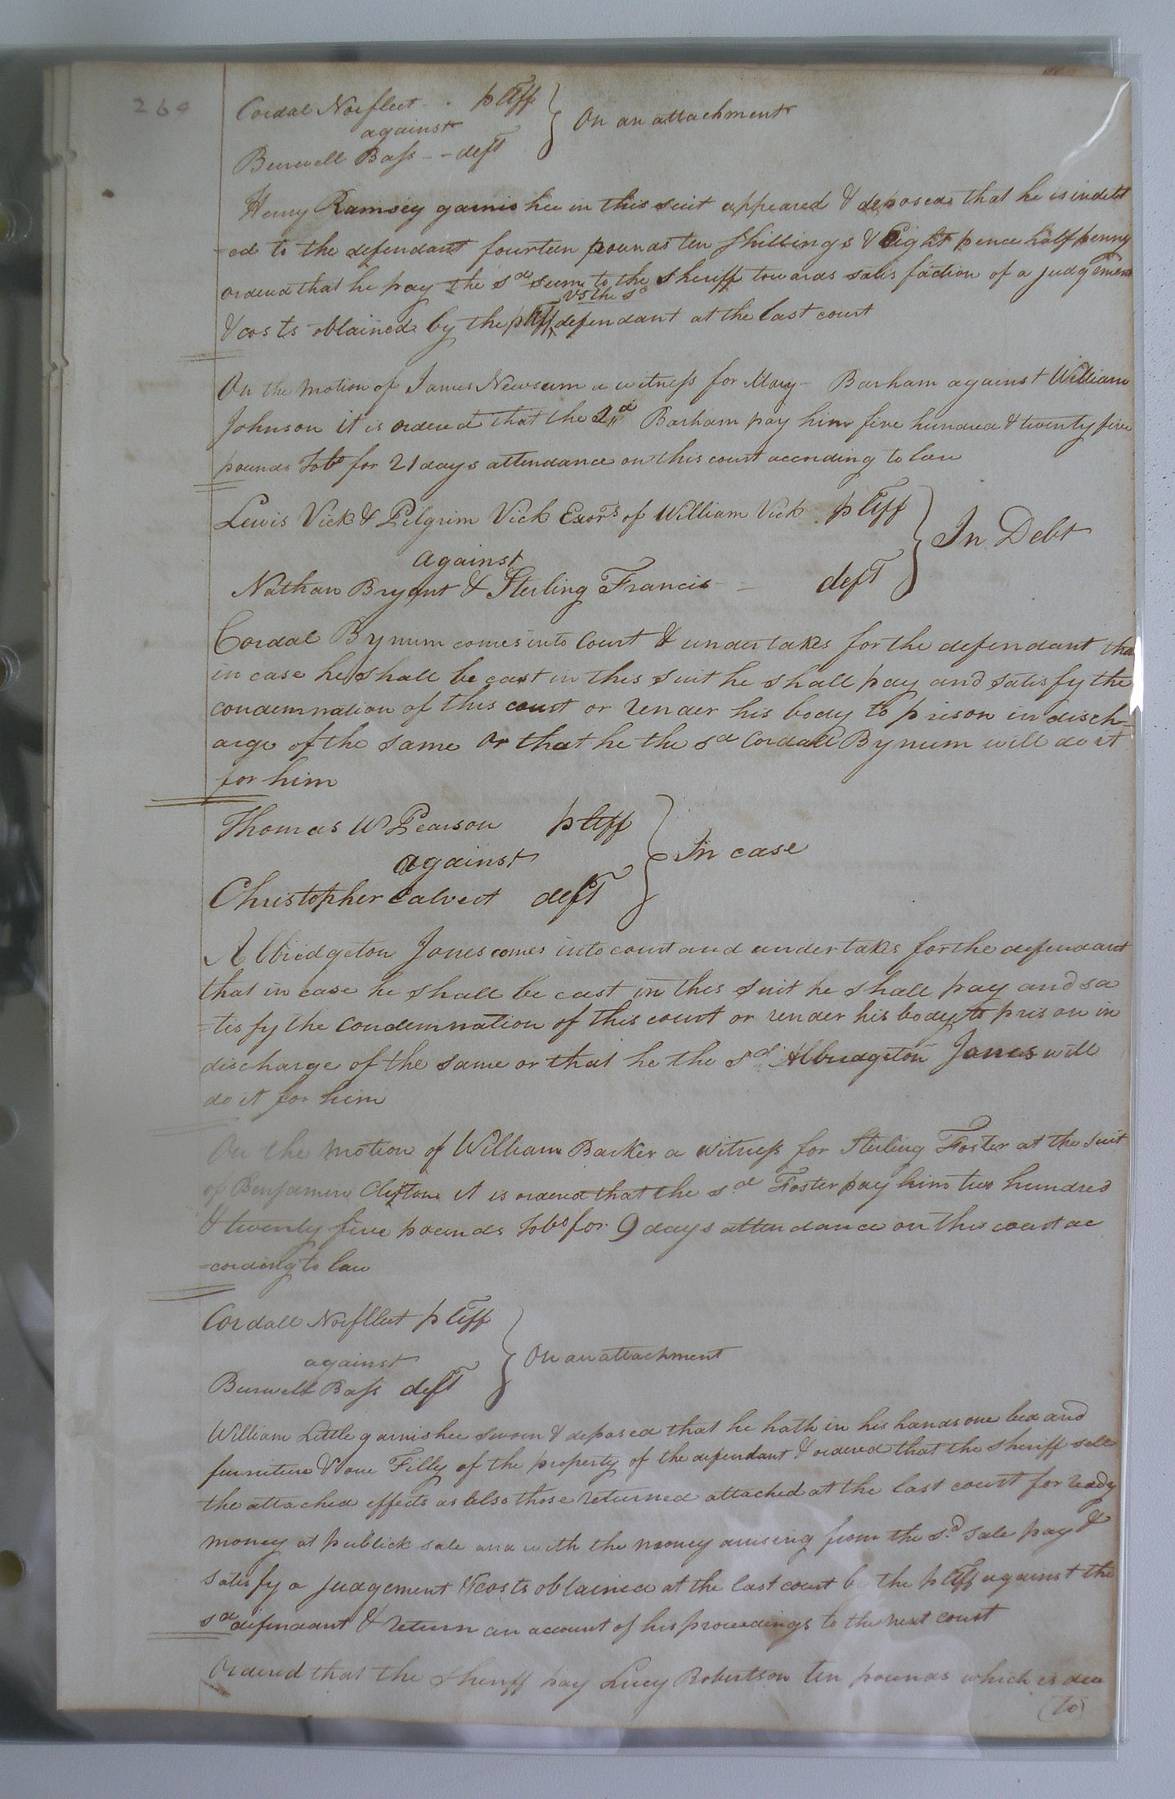 264
Cordal Norfleet - . pltff
against
Burwell Bass - - deft
On an attachment
Henry Ramsey garnishee in this suit appeared & deposed that he is indebt
-ed to the defendant fourteen pounds ten shillings & Eight pence half penny
ordered that he pay the sd sum to the sheriff towards satisfaction of a judgement
vs the sd
& costs obtained by the pltff defendant at the last court
On the motion of James Newsum a witness for Mary Barham against William
Johnson it is ordered that the sd Barham pay him five hundred & twenty five
pounds Tobo for 21 days attendance on this court according to law
Lewis Vick & Pilgrim Vick Exors of William Vick pltff
against
Nathan Bryant & Sterling Francis - deft
In Debt
Cordal Bynum comes into Court & undertakes for the defendant that
in case he shall be cast in this suit he shall pay and satisfy the
condemnation of this court or render his body to prison in disch-
arge of the same or that he the sd Cordall Bynum will do it
for him
Thomas W Pearson pltff
against
Christopher Calvert deft
In case
Albridgeton Jones comes into court and undertakes for the defendant
that in case he shall be cast in this suit he shall pay and sa
-tisfy the condemnation of this court or render his body to prison in
discharge of the same or that he the sd Albridgeton Jones will
do it for him
On the motion of William Barker a witness for Sterling Foster at the suit
of Benjamin Clifton it is ordered that the sd Foster pay him two hundred
& twenty five pounds Tobo for 9 days attendance on this court ac
-cording to law
Cordall Norfleet pltff
against
Burwell Bass deft
On an attachment
William Little garnishee sworn & deposed that he hath in his hands one bed and
furniture & one Filly of the property of the defendant & ordered that the sheriff sell
the attached effects as also those returned attached at the last court for ready
money at publick sale and with the money arising from the sd sale pay &
satisfy a judgement & costs obtained at the last court by the pltff against the
sd defendant & return an account of his proceedings to the next court
Ordered that the sheriff pay Lucy Robertson ten pounds which is due
(to)